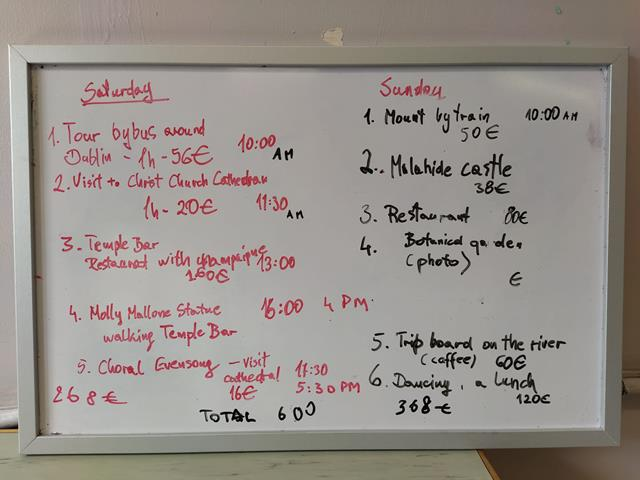 Saturday
1. Tour by bus around 10:00
Dablin - 1h - 56€ AM
2. Visit to Christ Church Cathedran
1h - 20€ 11:30 AM
3. Temple Bar
Restaurant with champaigne 13:00
160€
4. Molly Mallone Statue 16:00 4 PM
walking Temple Bar
5. Choral Evensong - visit 17:30
cathedral 5:30 PM
16€
268€
Sunday
1. Mount by train 10:00 AM
50€
2.. Malahide castle
38€
3. Restaurant 80€
4. Botanical garden
(photo)
€
5. Trip board on the river
(coffee) 60€
6. Dancing, a lunch
120€
368€
TOTAL 600